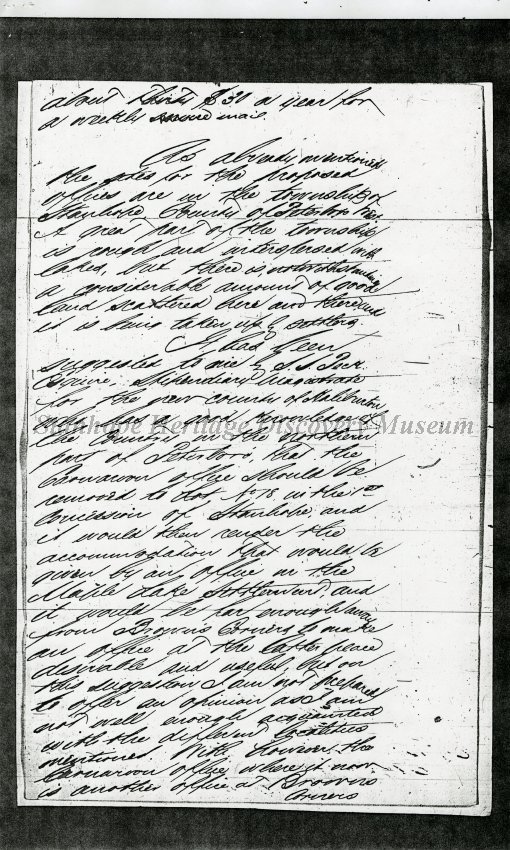 about thirty $30 a year for
a weekly mail.
As already mentioned
the sites for the proposed
offices are in the township of
Stanhope County of Peterboro
A great part of the township
is rough and interspersed with
lakes, but there is notwithstanding
a considerable amount of good
land scattered here and there and
it is being taken up by settlers
It has been
suggested to me by
Esquire, Stipendiary Magistrate
for the new county of Haliburton
who has a good knowledge of
Stanhope Heritage Discovery Museum
the country in the northern
part of Peterboro, that the
Carnarvon office should be
removed to Lot No 18 in the 1st
Concession of Stanhope and
it would then render the
accommodation that would be
given by an office in the
Maple Lake Settlement and
it would be far enough away
from Brown's Corners to make
an office at the latter place
desirable and useful, but on
this suggestion I am not prepared
to offer an opinion as I am
not well enough acquainted
with the different localities
mentioned. With however the
Carnarvon office where it now
is another office at Browns
Corners